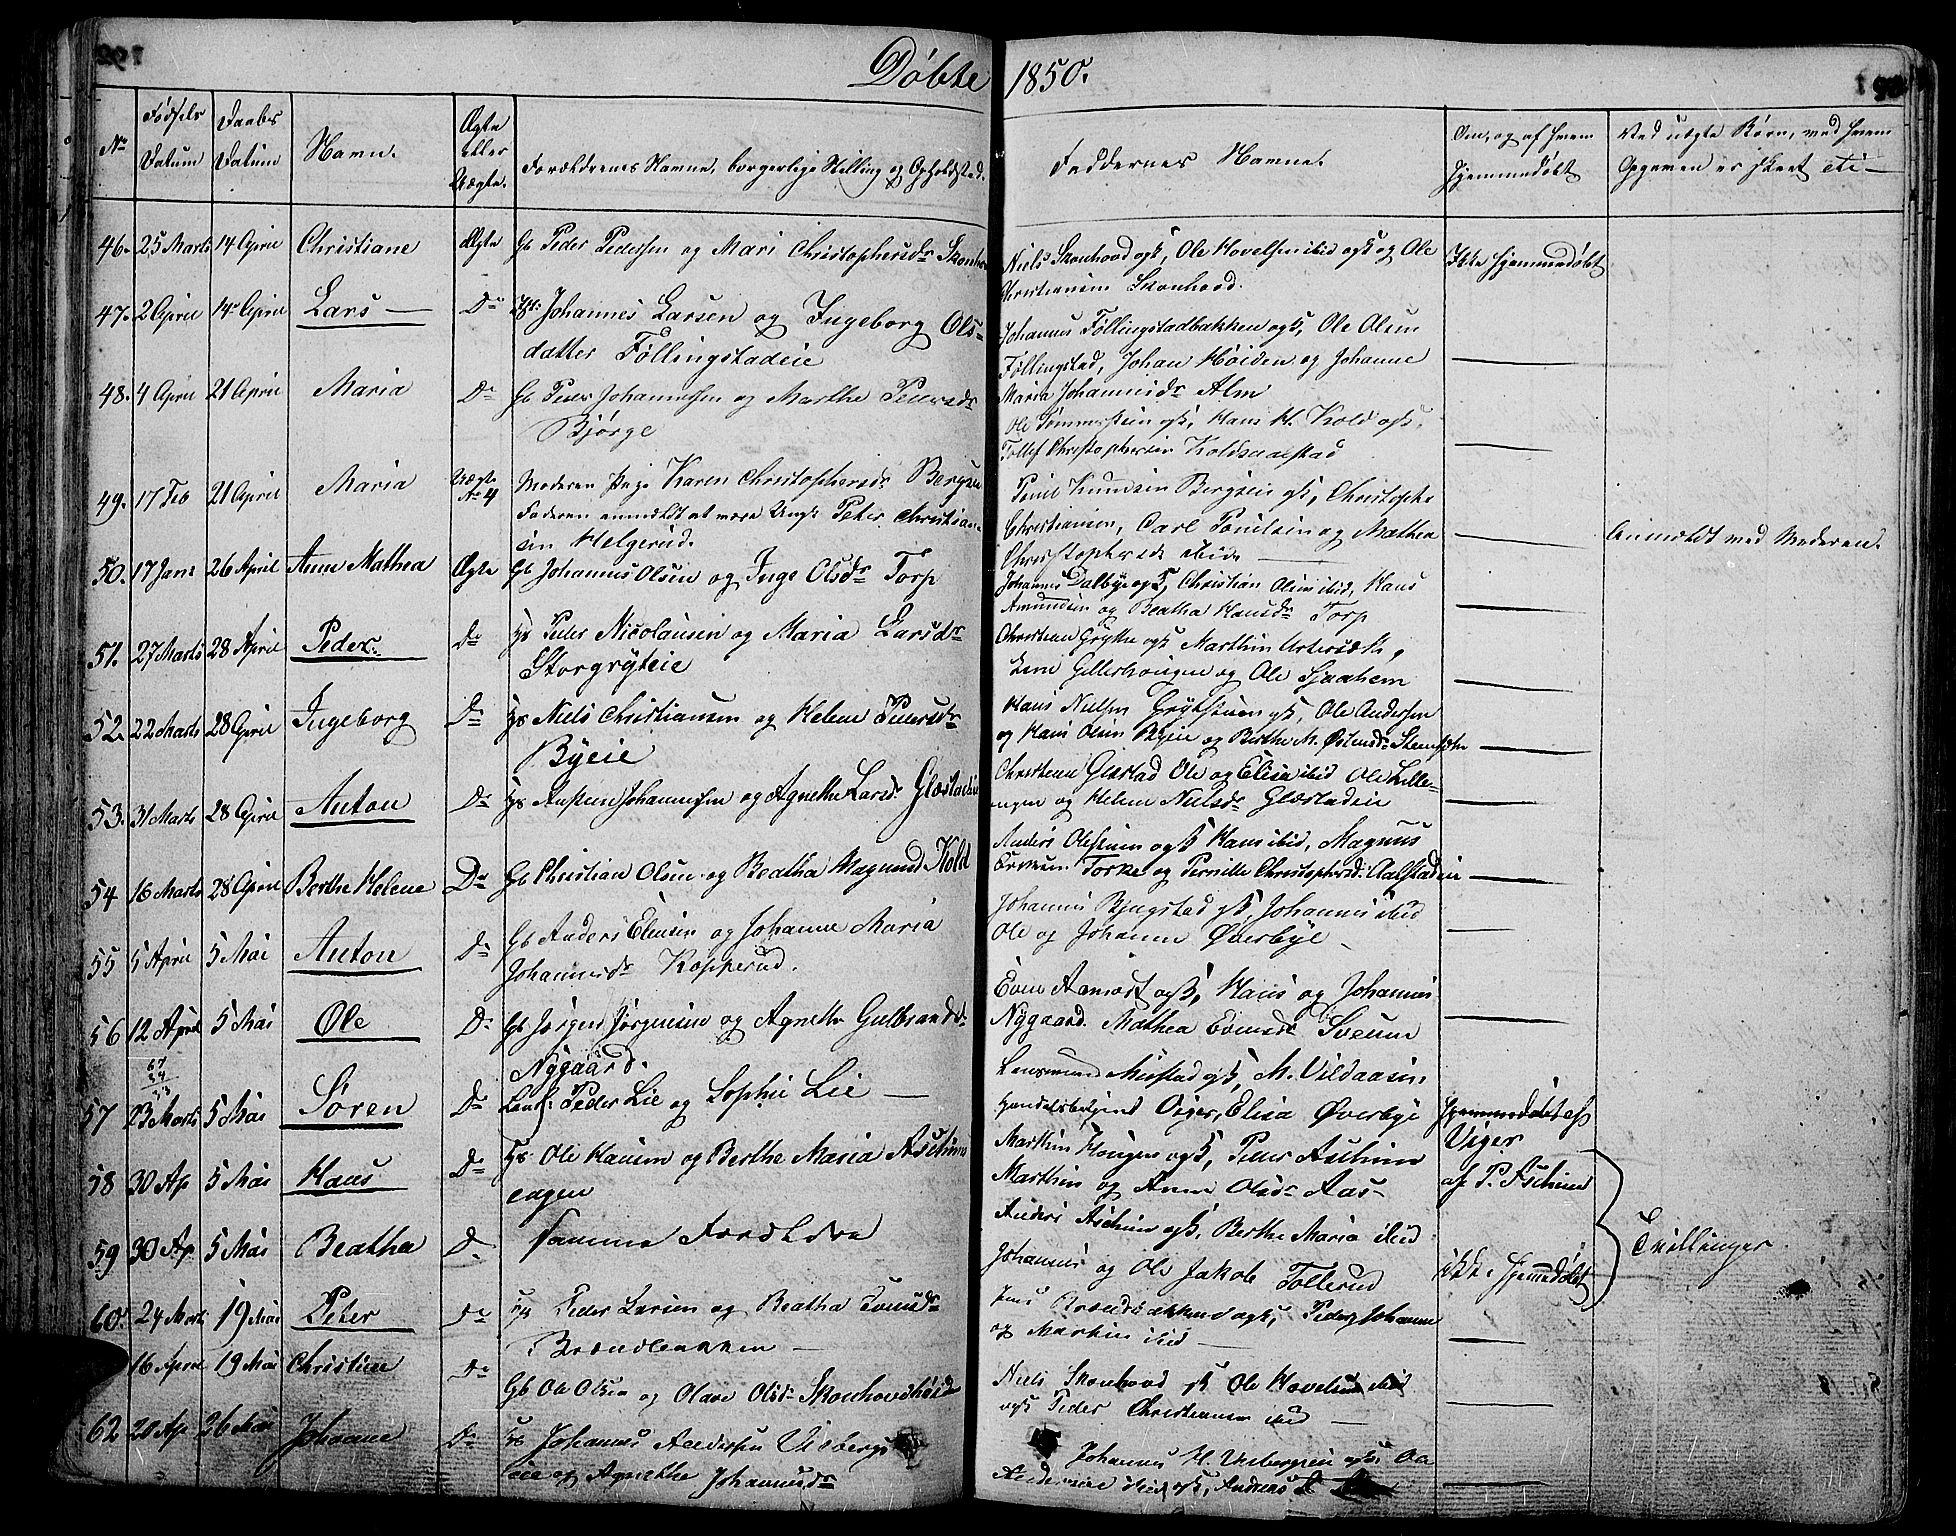 192
Døbte 1850.
No
Fødsels Datum
Daabs Datum
Navn.
Ægte eller Uægte.
Forældrenes Navne, borgerlige Stilling og Opholdsted.
Faddernes Navne.
Om, og af hvem hjemmedøbt
Ved uægte Børn, med hvem
Opgaven er skeet
46. 25 Marts 14 April Christiane Ægte Gb Peder Pedersen og Mari Christophersdr Skonho
Niels Skonhovd ogs, Ole Hovelsen ibid ogs og Ole
Christiansen Skonhovd.
Ikke hjemmedøbt
47. 2 April 14 April Lars Do Johannes Larsen og Ingeborg Ols-
datter Føllingstadeie
Johannes Føllingstadbakken ogs, Ole Olsen
Føllingstad, Johan Høiden og Johanne
Maria Johannesdr Alm
48. 4 April 21 April Maria Do Gb Peder Johannessen og Marthe Pedersdr
Bjørge
Ole ogs, Hans H. Kold ogs.
Tollef Christophersen
49. 17 Feb 21 April Maria Uægte No 4 Moderen Pige Karen Christophersdr Bergseie
Faderen anmeldt at være Ungk Peter Christian-
sen Helgerud.
Poul Knudsen Bergseie ogs, Christopher
Christiansen, Carl Poulsen og Mathea
Christophersdr ibid
Anmeldt med Moderen.
50. 17 Jan 26 April Anne Mathea Ægte Gb Johannes Olsen og Inge Olsdr Torp
Johannes Dalbye ogs, Christian Olsen ibid, Hans
Amundsen og Beatha Hansdr Torp
51. 27 Marts 28 April Peder Do Hs Peder Nicolaisen og Maria Larsdr
Storgryteie
Christian Grythe ogs Marthin
Lene Gillerhaugen og Ole Sjaahem
52. 22 Marts 28 April Ingeborg Do Hs Niels Christiansen og Helene Pedersdr
Byeie
Hans Nielsen ogs, Ole Andersen
og Hans Olsen Byeie og Berthe M. Østensdr
53. 31 Marts 28 April Anton Do Hs Austen Johannessen og Agnethe Larsdr Glæstadeie
Christian Glæstad Ole og Elisa ibid Ole Lille-
engen og Helene Nielsdr Glæstadeie
54 16 Marts 28 April Berthe Helene Do Gb Christian Olsen og Beatha Magnusd Kold
Anders ogs Hans ibid, Magnus
Torke og Pernille Christophersd. Aalstadeie
55 5 April 5 Mai Anton Do Gb Anders Olsen og Johanne Maria
Johannesdr Kopperud.
Johannes Bjugstad ogs, Johannes ibid
Ole og Johanne Øverbye
56 12 April 5 Mai Ole Do Gb Jørgen Jørgensen og Agnethe Gulbrandsdr
Nygaard.
Even Aamodt ogs, Hans og Johannes
Nygaard. Mathea Evensdr Sveum
57 23 Marts 5 Mai Søren Do Lensm. Peder Lie og Sophie Lie
Lensmand Mustad ogs, M. Vildaasen,
Handelsbetjent Viger, Elisa Øverbye
hjemmedøbt af
Viger
58 30 Ap 5 Mai Hans Do Hs Ole Hansen og Berthe Maria Aschim
engen
Marthin Haugen ogs, Peder Aschim
Marthin og Anne Olsdr Aas
af P. Aschim
59 30 Ap 5 Mai Beatha D samme Forældre
Anders Aschim ogs, Berthe Maria ibid
Johannes og Ole Jakob Tollerud
ikke hjemmedøbt
Tvillinger.
60. 24 Marts 19 Mai Peter Do Peder Larsen og Beatha Evensdr
Brændbakken
Jens Brændbakken ogs, Peder, Johanne
og Martin ibid
16 April 19 Mai Christine Do Gb Ole Olsen og Olave Olsdr Skonhovdhøid
Niels Skonhovd ogs Ole Hovelsen ibid
ogs Peder Christiansen ibid
62 20 Ap 26 Mai Johanne Do Hs Johannes Andersen Visbergs
eie og Agnethe Johannesdr
Johannes H. Visbergseie ogs, Ole
Andersen ibid ogs, Andreas